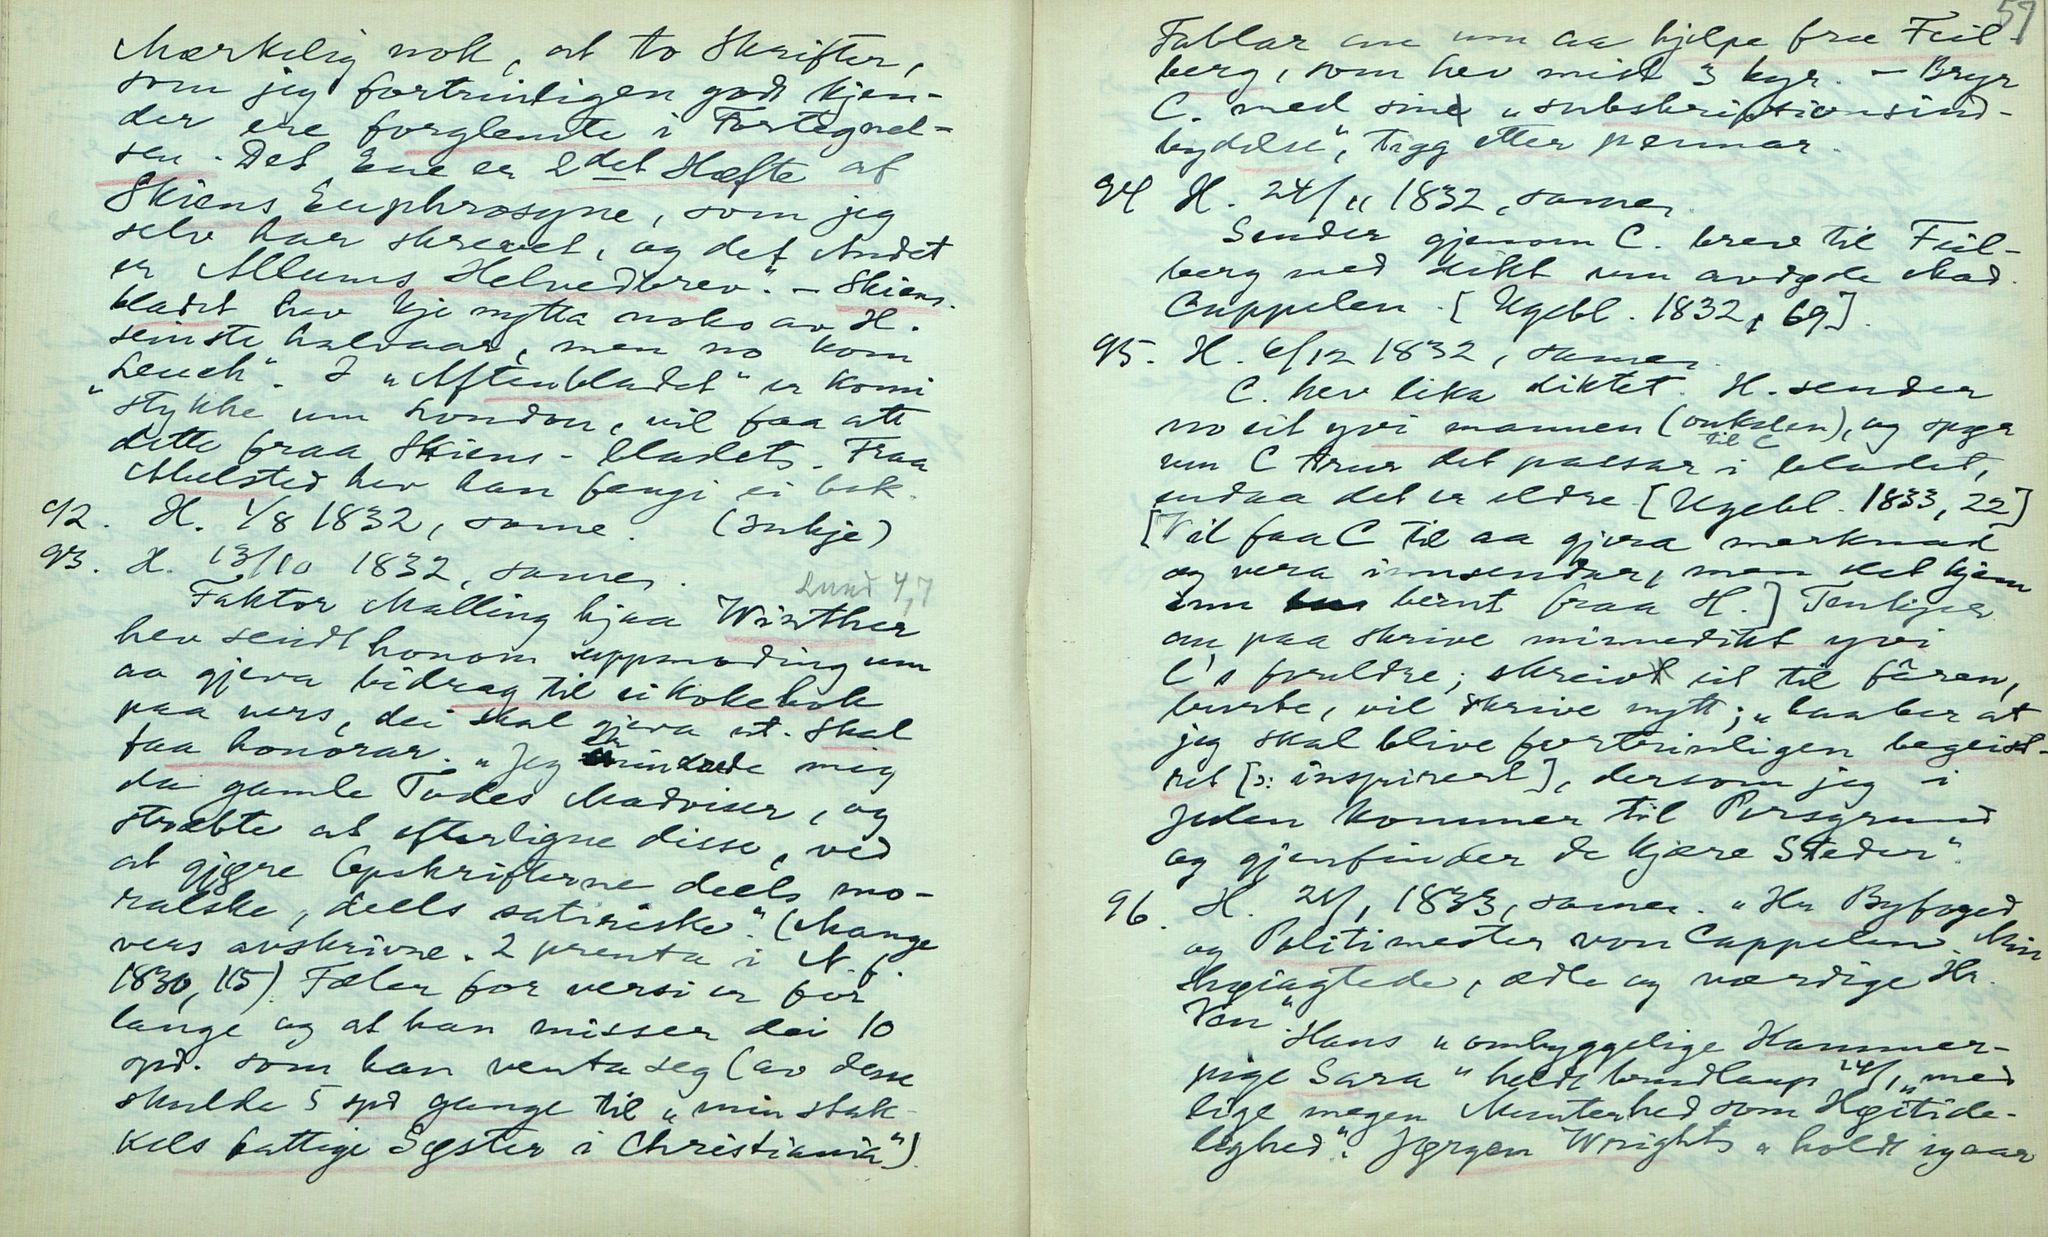 Mærkelig nok, at to Skrifter,
som jeg fortrinligen godt kjen-
der ere forglemte i Fortegnel-
sen. Det Ene er 2det Hæfte af
Skiens Euphrosyne, som jeg
selv har skrevet, og det Andet
er Allums Helvedbrev". - Skiens-
bladet hev kje nytta noko av H.
seinste halvaar, men no kom
"Leuch". I "Aftenbladet" er komi
stykke um London, vil faa att
dette fraa Skiens-bladets. Fraa
Mulsted hev han fengi ei bok.
92. H. 1/8 1832, same. (Inkje)
93. H. 13/10 1832, same.
Lund 4,7
Faktor Malling hjaa Winther
hev sendt honom uppmoding um
aa gjera bidrag til ei Kokebok
paa vers, dei skal gjeva ut. Skal
faa honorar. "Jeg erindrede mig
da gamle Todes Madviser, og
stræbte at efterligne disse, ved
at gjøre Opskrifterne deels mo-
ralske, deels satiriske." (Mange
vers avskrivne. 2 prenta i N.
1830, 115). Fælar for versi er for
lange og at han misser dei 10
spd. som han venta seg (av desse
skulde 5 spd gange til "min stak-
kels fattige Søster i Christiania").
57
Tablar um aa hjelpe fru Feil-
berg, som hev mist 3 kyr. - Bryr
C. med sine "subskriptionsind-
bydelse", tigg etter pennar.
94 H. 24/11 1832, same.
Sender gjenom C. brev til Feil-
berg med dikt um avdøde Mad.
Cappelen. [Ugebl. 1832, 69].
95. H. 6/12 1832, same.
C. hev lika diktet. H. sender
no eit yvi mannen (onkelen), og spør
til C
um C trur det passar i bladet,
endaa det er eldre [Ugebl. 1833, 22]
[Vil faa C til aa gjera merknad
og vera innsendar, men det kjem
inn beint fraa H.] Tenkjer
paa skrive minnedikt yvi
C's foreldre; skreiv eit til fåren,
burte, vil skrive nytt; "haaber at
jeg skal blive fortrinligen begeist-
ret [ɔ: inspirert], dersom jeg i
Julen kommer til Porsgrund
og gjenfinder de kjære Steder".
96. H. 24/1 1833, same. "Hr Byfoged
og Politimester von Cappelen. Min
høiagtede, ædle og værdige Hr.
Ven".
Hans "ombyggelige Kammer-
pige Sara" heldt brudlaup 24/1 "med
lige megen Munterhed som Høitide-
lighed". Jørgen Wrights "holdt igaar